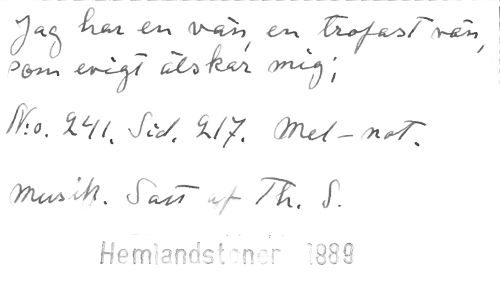 Jag har en vän, en trofast vän,
som evigt älskar mig;
N:o. 241. Sid. 217. Mel-not.
musik. Satt af Th. S.
Hemlandstoner 1889